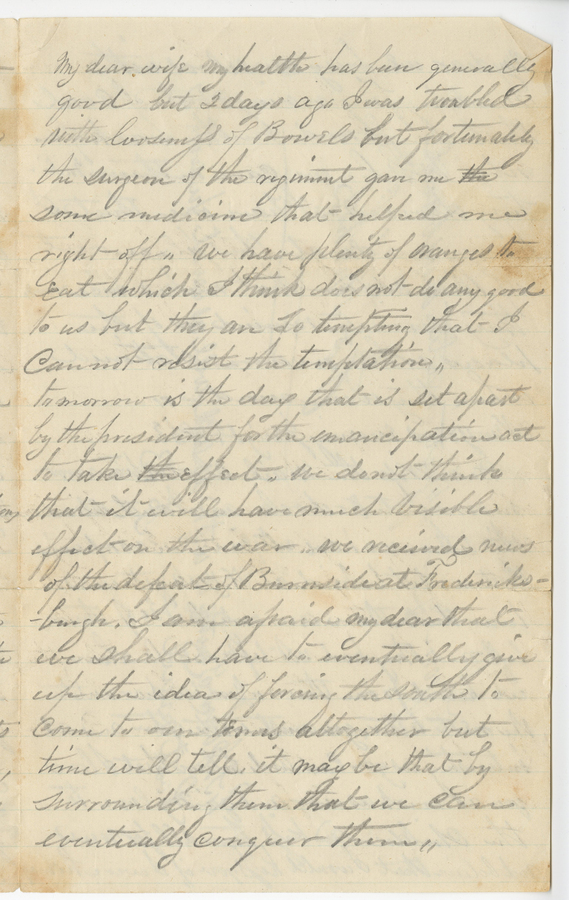 My dear wife my health has been generally
good but 2 days ago I was troubled
with loosness of Bowels but fortunately
the surgeon of the regiment gave me the
some medicine that helped me
right off,, we have plenty of oranges to
Eat which I think does not do any good
to us but they are so tempting that I
Cannot resist the temptation,,
tomorrow is the day that is set apart
by the president for the emancipation act
to take the effect,, we do not think
that it will have much visible
effect on the war,, we recieved news
of the defeat of Burnside at Fredericks-
-burgh. I am afraid my dear that
we shall have to eventually give
up the idea of forcing the south to
Come to our terms altogether but
time will tell. it may be that by
surrounding them that we can
eventually conquer them,,